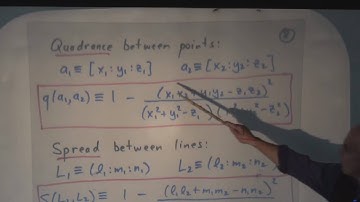 Quadrance between points:
a₁ ≡ [x₁:y₁:z₁] a₂ ≡ [x₂:y₂:z₂]
q(a₁,a₂) ≡ 1 − (x₁x₂+y₁y₂−z₁z₂)²
(x₁²+y₁²−z₁²)( −z₂²)
Spread between lines:
L₁ ≡ (l₁:m₁:n₁) L₂ ≡ (l₂:m₂:n₂)
S(L₁,L₂) ≡ 1 − (l₁l₂+m₁m₂−n₁n₂)²